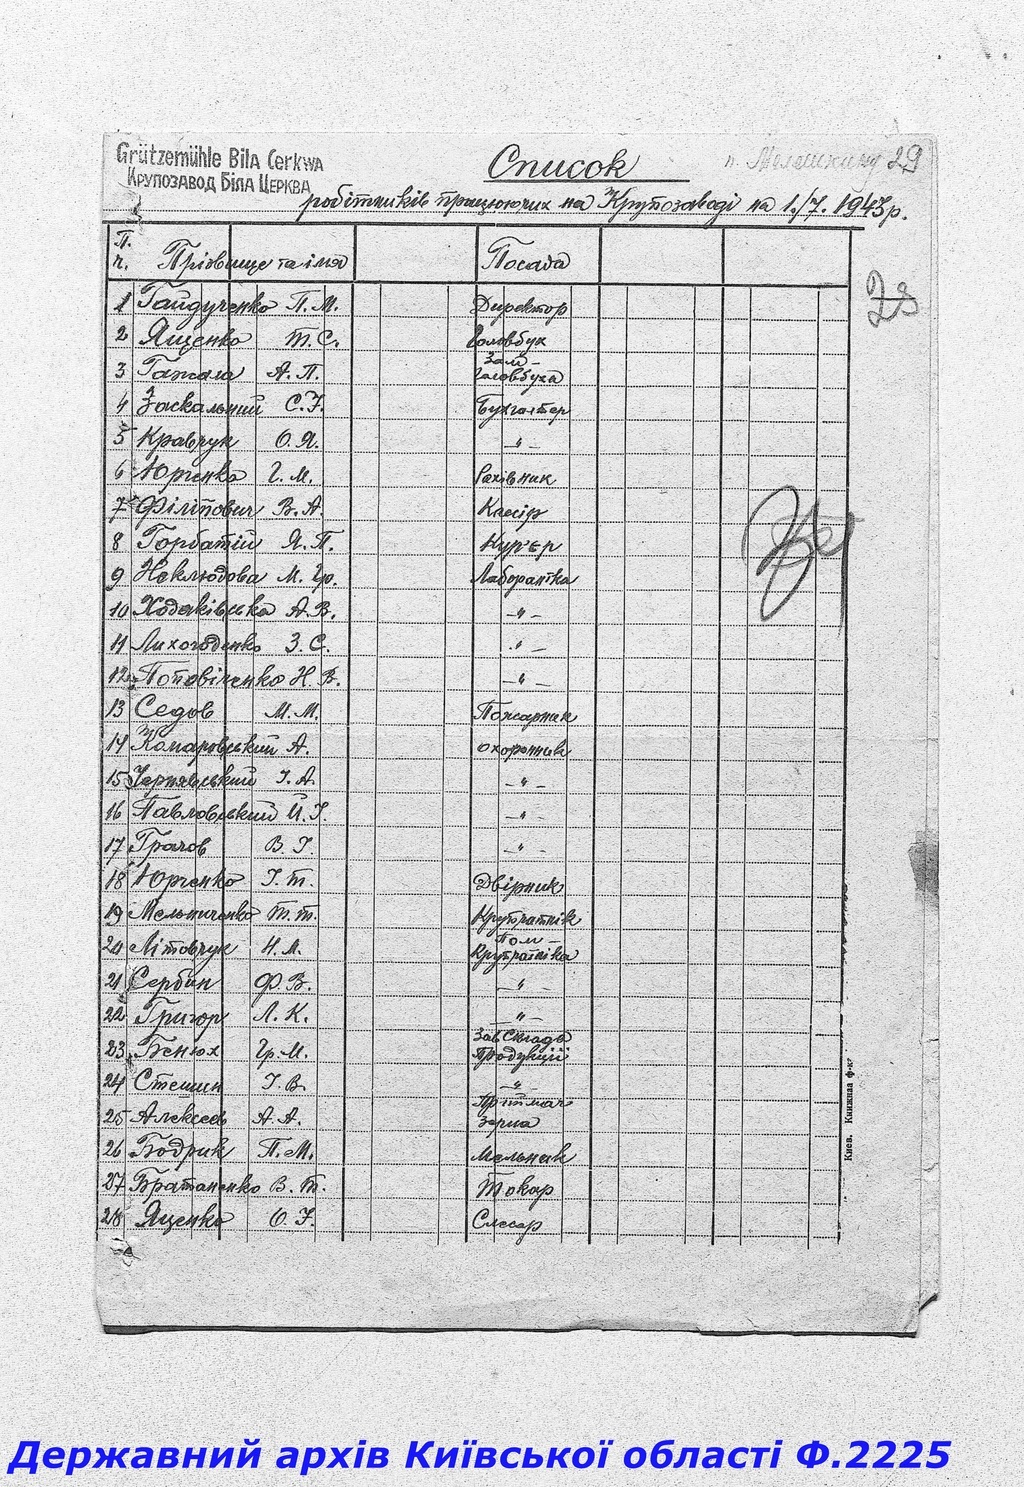 Grützemühle Bila Cerkwa
Крупозавод Біла Церква
Список
п. 29
робітників працюючих на Крупозаводі на 1./7. 1943р.
П.п. Прізвище та імя Посада
28
1 Гайдученко П.М. Директор
2 Ященко Т.С. Головбух
3 А.П. Зам- Головбуха
4 Заскальний С.І. Бухгалтер
5 Кравчук О.Я. -"-
6 Юрченко Г.М. Рахівник
7 Філіпович В.А. Касір
8 Горбатій Я.П. Кур'єр
9 Неклюдова М.Гр. Лаборантка
10 Ходаківська А.В. -"-
11 Лихогоденко З.С. -"-
12 Поповіченко Н.В. -"-
13 Седов М.М. Пожарник
14 Комаровський А. охоронник
15 Чернявський І.А. -"-
16 Павловський Й.І. -"-
17 Грачов В.І. -"-
18 Юрченко І.Т. Двірник
19 Мельниченко Т.Т. Крупчатнік
20 Літовчук Н.М. Пом- Крупчатніка
21 Сербин Ф.В. -"-
22 Григор Л.К. -"-
23 Бенюх Гр.М. Зав Складу Продукції
24 Стешин І.В. -"-
25 Алексеев А.А. Приймач Зерна
26 Бодрик П.М. Мельник
27 Братаненко В.Т. Токар
28 Яценко О.І. Слесар
Киев. Книжная ф-ка
Державний архів Київської області Ф.2225